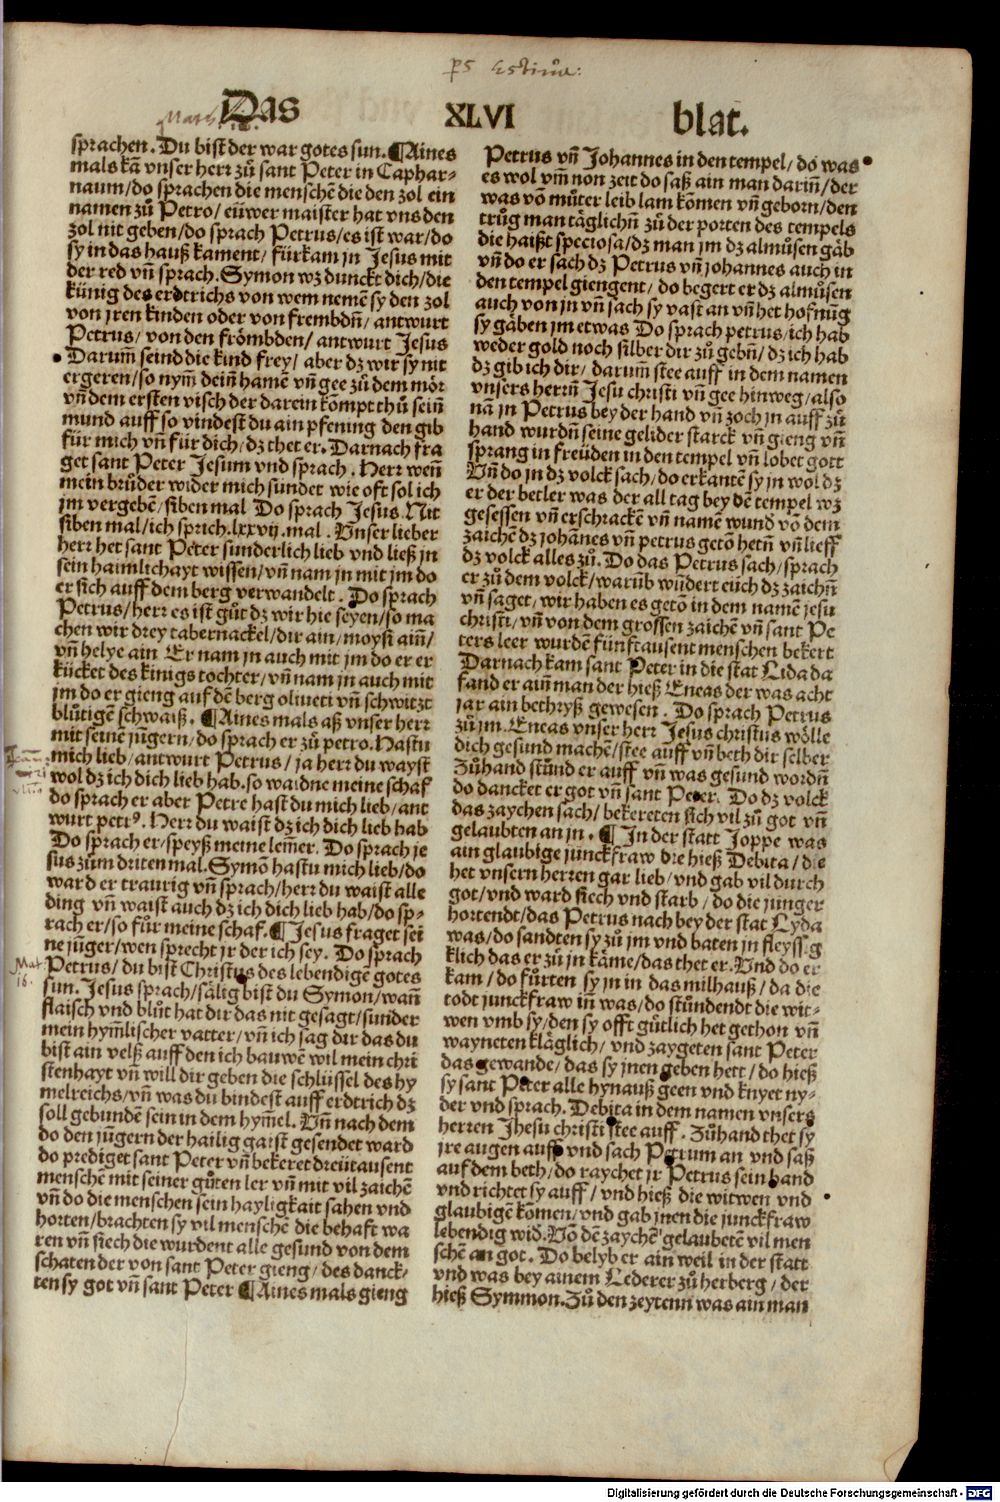 Das XLVI blat.
sprachen. Du bist der war gotes sun. ¶ Aines
mals kā vnser herr zů sant Peter in Caphar⸗
naum/do sprachen die menschē die den zol ein
namen zů Petro/ eüwer maister hat vns den
zol nit geben/do sprach Petrus/es ist war/do
sy in das hauß kament/ fürkam jn Jesus mit
der red vñ sprach. Symon wz dunckt dich/die
künig des erdtrichs von wem nemē sy den zol
von jren kinden oder von frembdñ/ antwurt
Petrus/ von den frömbden/ antwurt Jesus
Darum̃ seind die kind frey/ aber dz wir sy nit
ergeren/so nym̃ deiñ hamē vñ gee zů dem mör
vñ dem ersten visch der darein kōmpt thů seiñ
mund auff so vindest du ain pfening den gib
für mich vñ für dich/dz thet er. Darnach fra
get sant Peter Jesum vnd sprach. Herr weñ
mein brůder wider mich sündet wie oft sol ich
jm vergebē/siben mal Do sprach Jesus. Nit
siben mal/ich sprich.lxxvij.mal. Vnser lieber
herr het sant Peter sunderlich lieb vnd ließ jn
sein haimlichayt wissen/vñ nam jn mit jm do
er sich auff dem berg verwandelt. Do sprach
Petrus/herr es ist gůt dz wir hie seyen/so ma
chen wir drey tabernackel/dir ain/moysi aiñ/
vñ helye ain Er nam jn auch mit jm do er er
kücket des künigs tochter/vñ nam jn auch mit
jm do er gieng auf dē berg oliueti vñ schwitzt
blůtigē schwaiß. ¶ Aines mals aß vnser herr
mit seinē jūgern/do sprach er zů petro. Hastu
mich lieb/antwurt Petrus/ ja herr du wayst
wol dz ich dich lieb hab. so waidne meine schaf
do sprach er aber Petre hast du mich lieb/ant
wurt petrꝰ. Herr du waist dz ich dich lieb hab
Do sprach er/speyß meine lem̃er. Do sprach je
sus zům driten mal. Symō hastu mich lieb/do
ward er traurig vñ sprach/herr du waist alle
ding vñ waist auch dz ich dich lieb hab/do sp⸗
rach er/so fůr meine schaf. ¶ Jesus fraget sei
ne jūger/wen sprecht jr der ich sey. Do sprach
Petrus/ du bist Christus des lebendigē gotes
sun. Jesus sprach/sälig bist du Symon/wañ
flaisch vnd blůt hat dir das nit gesagt/sunder
mein hym̃lischer vatter/vñ ich sag dir das du
bist ain velß auff den ich bauwē wil mein chri
stenhayt vñ will dir geben die schlüssel des hy
melreichs/vñ was du bindest auff erdtrich dz
soll gebundē sein in dem hym̃el. Vñ nach dem
do den jūgern der hailig gaist gesendet ward
do prediget sant Peter vñ bekeret dreütausent
menschē mit seiner gůten ler vñ mit vil zaichē
vñ do die menschen sein hayligkait sahen vnd
horten/brachten sy vil menschē die behaft wa
ren vñ siech die wurdent alle gesund von dem
schaten der von sant Peter gieng/des danck⸗
ten sy got vñ sant Peter ¶ Aines mals gieng
Petrus vñ Johannes in den tempel/ do was
es wol vm̃ non zeit do saß ain man dariñ/der
was vō můter leib lam kōmen vñ geborn/den
trůg man täglichñ zů der porten des tempels
die haißt speciosa/dz man jm dz almůsen gäb
vñ do er sach dz Petrus vñ johannes auch in
den tempel giengent/ do begert er dz almůsen
auch von jn vñ sach sy vast an vñ het hofnūg
sy gäben jm etwas Do sprach petrus/ich hab
weder gold noch silber dir zů gebñ/dz ich hab
dz gib ich dir/ darum̃ stee auff in dem namen
vnsers herrñ Jesu christi vñ gee hinweg/also
nā jn Petrus bey der hand vñ zoch jn auff zů
hand wurdñ seine gelider starck vñ gieng vñ
sprang in freüden in den tempel vñ lobet gott
Vñ do jn dz volck sach/do erkantē sy jn wol dz
er der betler was der all tag bey dē tempel wz
gesessen vñ erschrackē vñ namē wund vō dem
zaichē dz johānes vñ petrus getō hetñ vñ lieff
dz volck alles zů. Do das Petrus sach/sprach
er zů dem volck/warūb wūdert eüch dz zaichñ
vñ saget/wir haben es getō in dem namē jesu
christi/vñ von dem grossen zaichē vñ sant Pe
ters leer wurdē fünftausent menschen bekert
Darnach kam sant Peter in die stat Lida da
fand er aiñ man der hieß Eneas der was acht
jar ain bethryß gewesen. Do sprach Petrus
zů jm. Eneas vnser herr Jesus christus wölle
dich gesund machē/stee auff vñ beth dir selber
Zůhand stůnd er auff vñ was gesund wordñ
do dancket er got vñ sant Peter. Do dz volck
das zaychen sach/ bekereten sich vil zů got vñ
gelaubten an jn. ¶ In der statt Joppe was
ain glaubige junckfraw die hieß Debita/ die
het vnsern herren gar lieb/vnd gab vil durch
got/vnd ward siech vnd starb/ do die junger
hortendt/das Petrus nach bey der stat Lyda
was/do sandten sy zů jm vnd baten jn fleyssig
klich das er zů jn käme/das thet er. Vnd do er
kam/do fůrten sy jn in das milhauß/da die
todt junckfraw iñ was/do stůndendt die wit⸗
wen vmb sy/den sy offt gůtlich het gethon vñ
wayneten kläglich/ vnd zaygeten sant Peter
das gewande/das sy jnen geben hett/do hieß
sy sant Peter alle hynauß geen vnd knyet ny⸗
der vnd sprach. Debita in dem namen vnsers
herren Jhesu christi stee auff. Zůhand thet sy
jre augen auff vnd sach Petrum an vnd saß
auf dem beth/do raychet jr Petrus sein hand
vnd richtet sy auff/vnd hieß die witwen vnd
glaubigē kōmen/vnd gab jnen die junckfraw
lebendig wid̕. Vō dē zaychē gelaubetē vil men
schē an got. Do belyb er ain weil in der statt
vnd was bey ainem Lederer zů herberg/der
hieß Symmon. Zů den zeytenn was ain man
Mat
16.
Digitalisierung gefördert durch die Deutsche Forschungsgemeinschaft - DFG